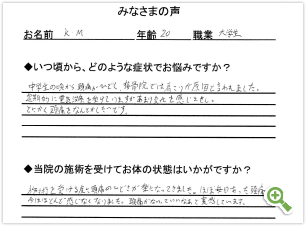 みなさまの声
お名前 K M 年齢 20 職業 大学生
◆いつ頃から、どのような症状でお悩みですか？
中学生の頃から頭痛がひどく、接骨院では肩こりが原因と言われました。
定期的に電気治療を受けていますがあまり変化を感じません。
とにかく頭痛をなんとかしたいです。
◆当院の施術を受けてお体の状態はいかがですか？
施術を受ける度に頭痛のひどさが楽になってきました。ほぼ毎日あった頭痛
今はほとんど感じなくなりました。頭痛がないっていいなぁと実感しています。